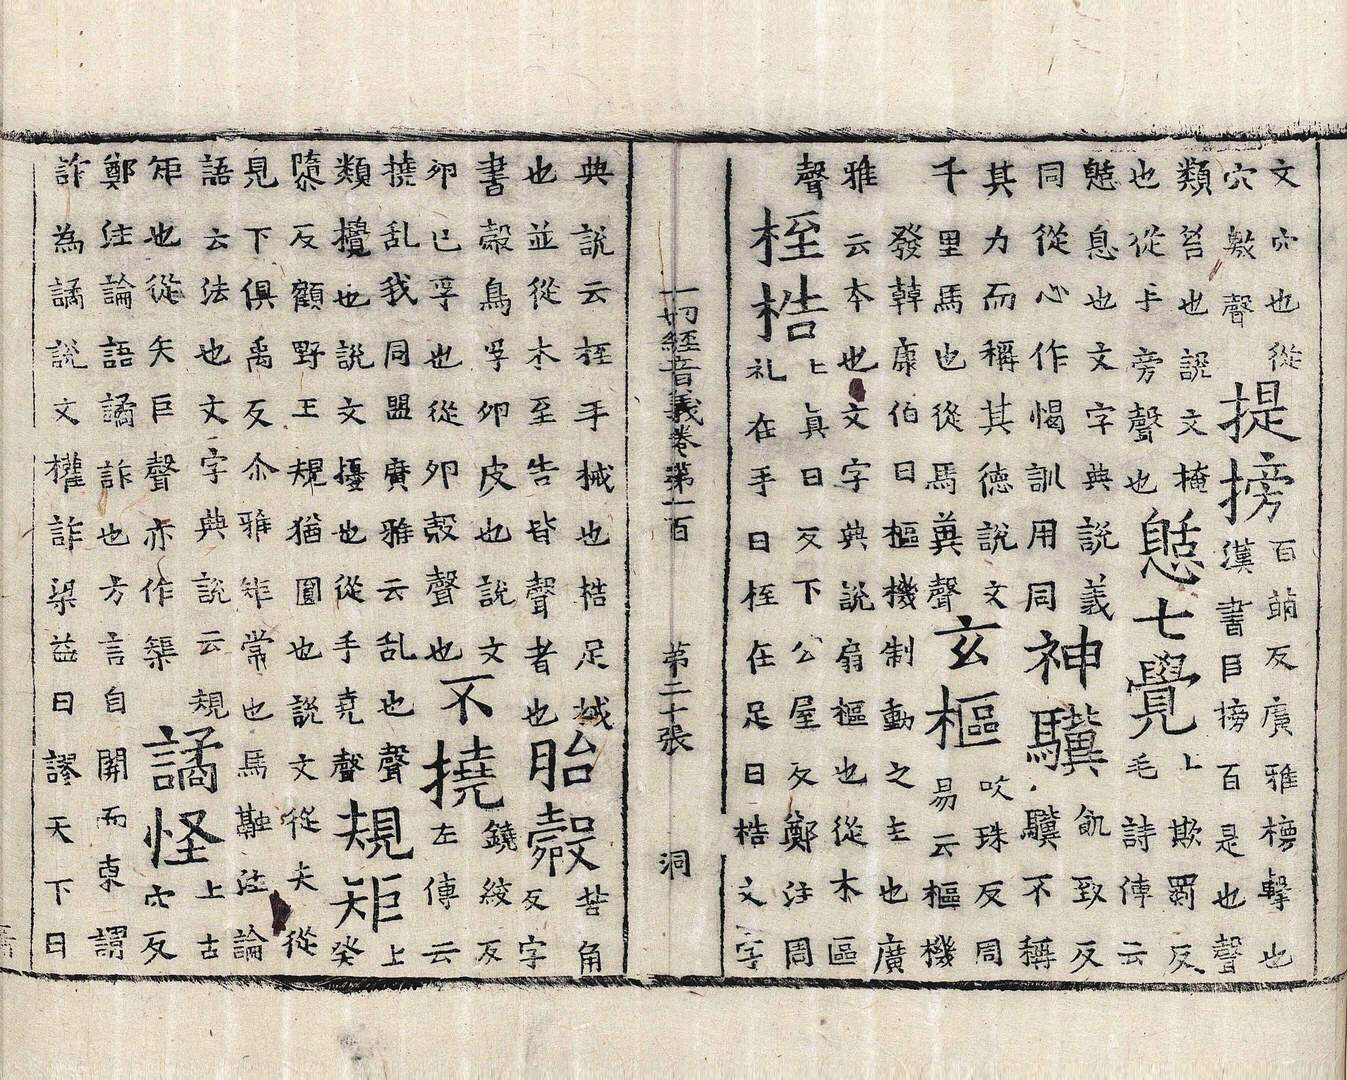 文穴也從
穴敫聲
提搒
百萠反廣雅搒擊也
漢書曰搒百是也聲
類笞也説文掩
也從手旁聲也
憩七覺
上欺罽反
毛詩傳云
憇息也文字典説義
同從心作愒訓用同
神驥
飢致反
驥不稱
其力而稱其德説文
千里馬也從馬冀聲
玄樞
吹珠反周
易云樞機
發韓康伯曰樞機制動之主也廣
雅云本也文字典説扇樞也從木區
聲
桎梏
上真日反下公屋反鄭注周
礼在手曰桎在足曰梏文字
一切經音義卷第一百 第二十張 洞
典説云桎手械也梏足械
也並從木至告皆聲者也
胎㲉
苦角
反字
書㲉鳥孚卵皮也説文
卵已孚也從卵㱿聲也
不撓
鐃絞反
左傳云
撓乱我同盟廣雅云乱也聲
類攪也説文擾也從手堯聲
規矩
上
癸
隨反顧野王規猶圓也説文從夫從
見下俱禹反尒雅矩常也馬融注論
語云法也文字典説云規
矩也從矢巨聲亦作榘
譎怪
上古
穴反
鄭注論語譎詐也方言自關而東謂
詐為譎説文權詐梁益曰謬天下曰